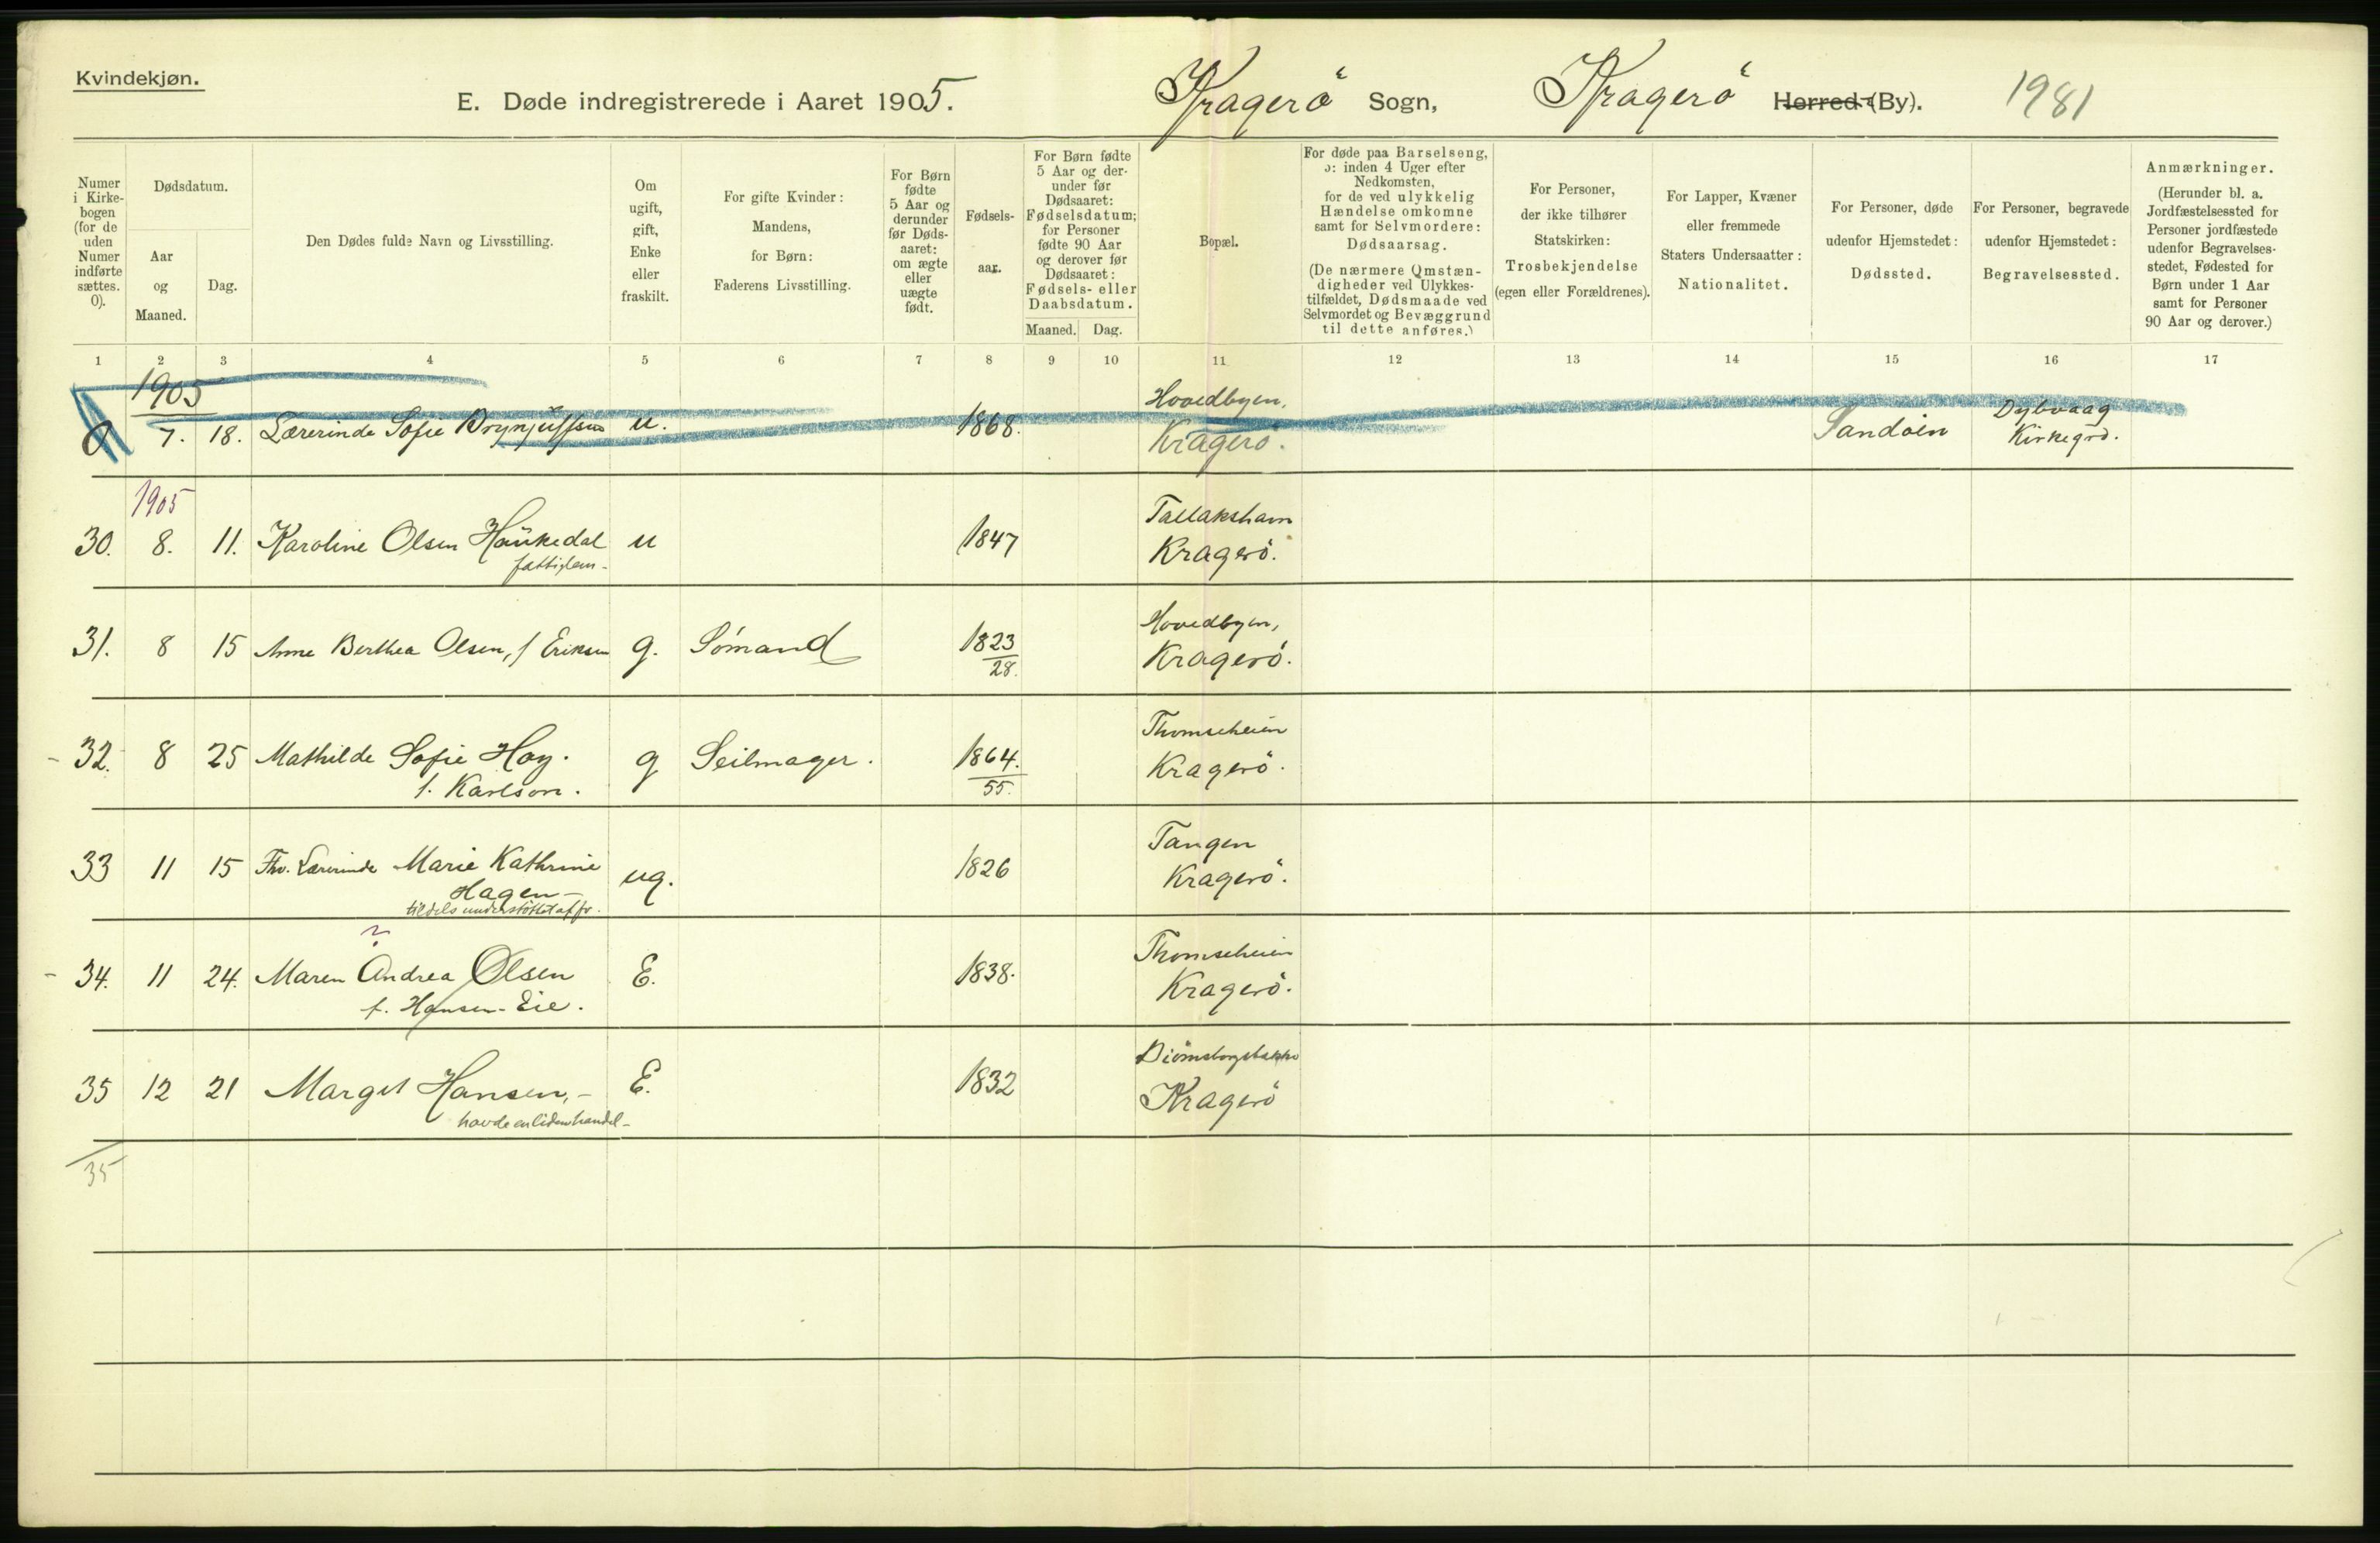 Kvindekjøn.
E. Døde indregistrerede i Aaret 1905.
Kragerö Sogn, Kragerö Herred (By). 1981
Numer i Kirke-bogen (for de uden Numer indførte sættes. 0).
Dødsdatum.
Aar og Maaned.
Dag.
Den Dødes fulde Navn og Livsstilling.
Om ugift, gift, Enke eller fraskilt.
For gifte Kvinder: Mandens, for Børn: Faderens Livsstilling.
For Børn fødte 5 Aar og derunder før Døds-aaret: om ægte eller uægte født.
Fødsels-aar.
For Børn fødte 5 Aar og der-under før Dødsaaret: Fødselsdatum; for Personer fødte 90 Aar og derover før Dødsaaret: Fødsels- eller Daabsdatum.
Maaned. Dag.
Bopæl.
For døde paa Barselseng, ɔ: inden 4 Uger efter Nedkomsten, for de ved ulykkelig Hændelse omkomne samt for Selvmordere: Dødsaarsag.
(De nærmere Omstæn-digheder ved Ulykkes-tilfældet, Dødsmaade ved Selvmordet og Bevæggrund til dette anføres.)
For Personer, der ikke tilhører Statskirken: Trosbekjendelse (egen eller Forældrenes).
For Lapper, Kvæner eller fremmede Staters Undersaatter: Nationalitet.
For Personer, døde udenfor Hjemstedet: Dødssted.
For Personer, begravede udenfor Hjemstedet: Begravelsessted.
Anmærkninger.
(Herunder bl. a. Jordfæstelsessted for Personer jordfæstede udenfor Begravelses-stedet, Fødested for Børn under 1 Aar samt for Personer 90 Aar og derover.)
1 2 3 4 5 6 7 8 9 10 11 12 13 14 15 16 17
1905 Hovedbyen, Dybvaag
0 7. 18. Lærerinde Sofie u. 1868. Kragerö. Sandöen Kirkegrd.
1905 Tallakshavn
30. 8. 11. Karoline Olsen Haukedal u 1847 Kragerö.
fattiglem-
Hovedbyen,
31. 8 15 Anne Berthea Olsen, f Eriksen g. Sömand 1823 Kragerö.
28.
Thomseheien
32. 8 25 Mathilde Sofie Hoy. g Seilmager. 1864. Kragerö.
f. Karlson. 55.
Tangen
33 11 15 Fhv. Lærerinde Marie Kathrine ug. 1826 Kragerö.
Hagen-
tildels understöttet af fv.
?
Thomseheien
34. 11 24. Maren Andrea Olsen E. 1838. Kragerö.
f. Hansen-Eie.
35 12 21 Margit Hansen,- E. 1832 Kragerö
havde en liden handel-
35